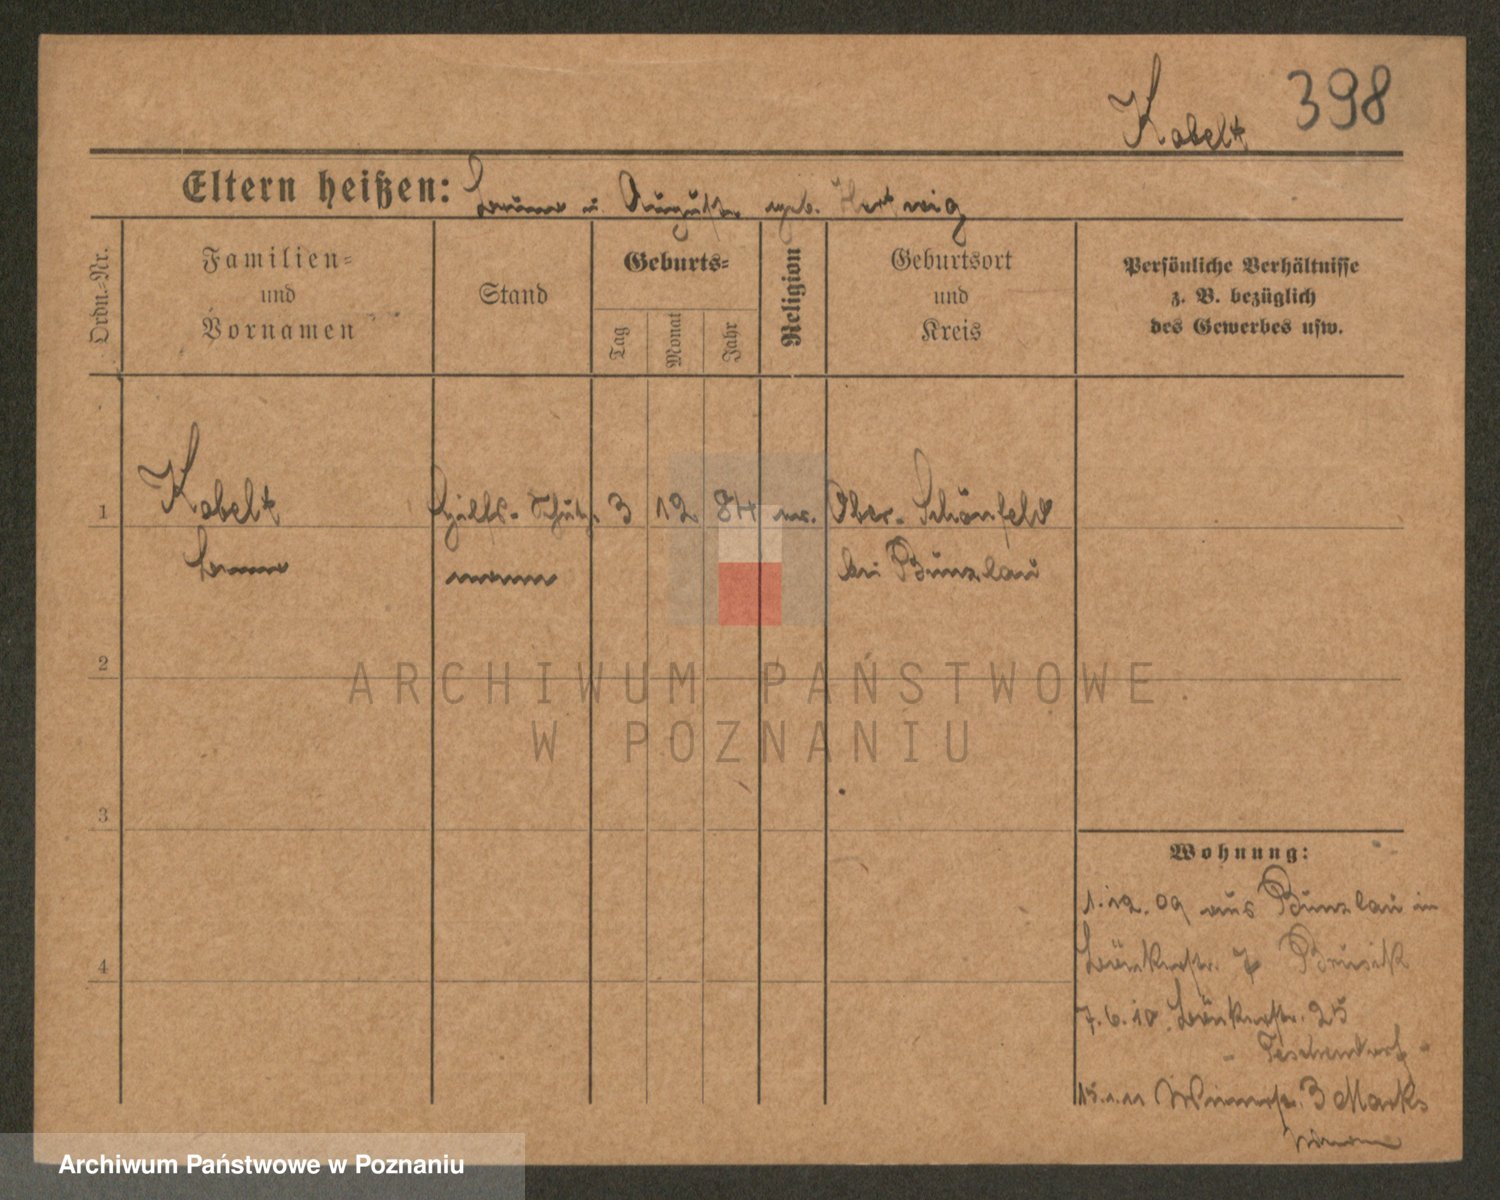 Kabelt 398
Eltern heißen: u. Auguste geb. Hertwig
Ordn.-Nr.
Familien-
und
Vornamen
Stand
Geburts-
Tag
Monat
Jahr
Religion
Geburtsort
und
Kreis
Persönliche Verhältnisse
z. B. bezüglich
des Gewerbes usw.
1 Kabelt Hülfs-Schutz- 3 12 84 ev. Ober-Schönfeld
mann bei Bunzlau
2
3
4
ARCHIWUM PAŃSTWOWE
W POZNANIU
Wohnung:
1.12.09 aus Bunzlau in
7
7.6.10. 25
15.1.11 3
Archiwum Państwowe w Poznaniu